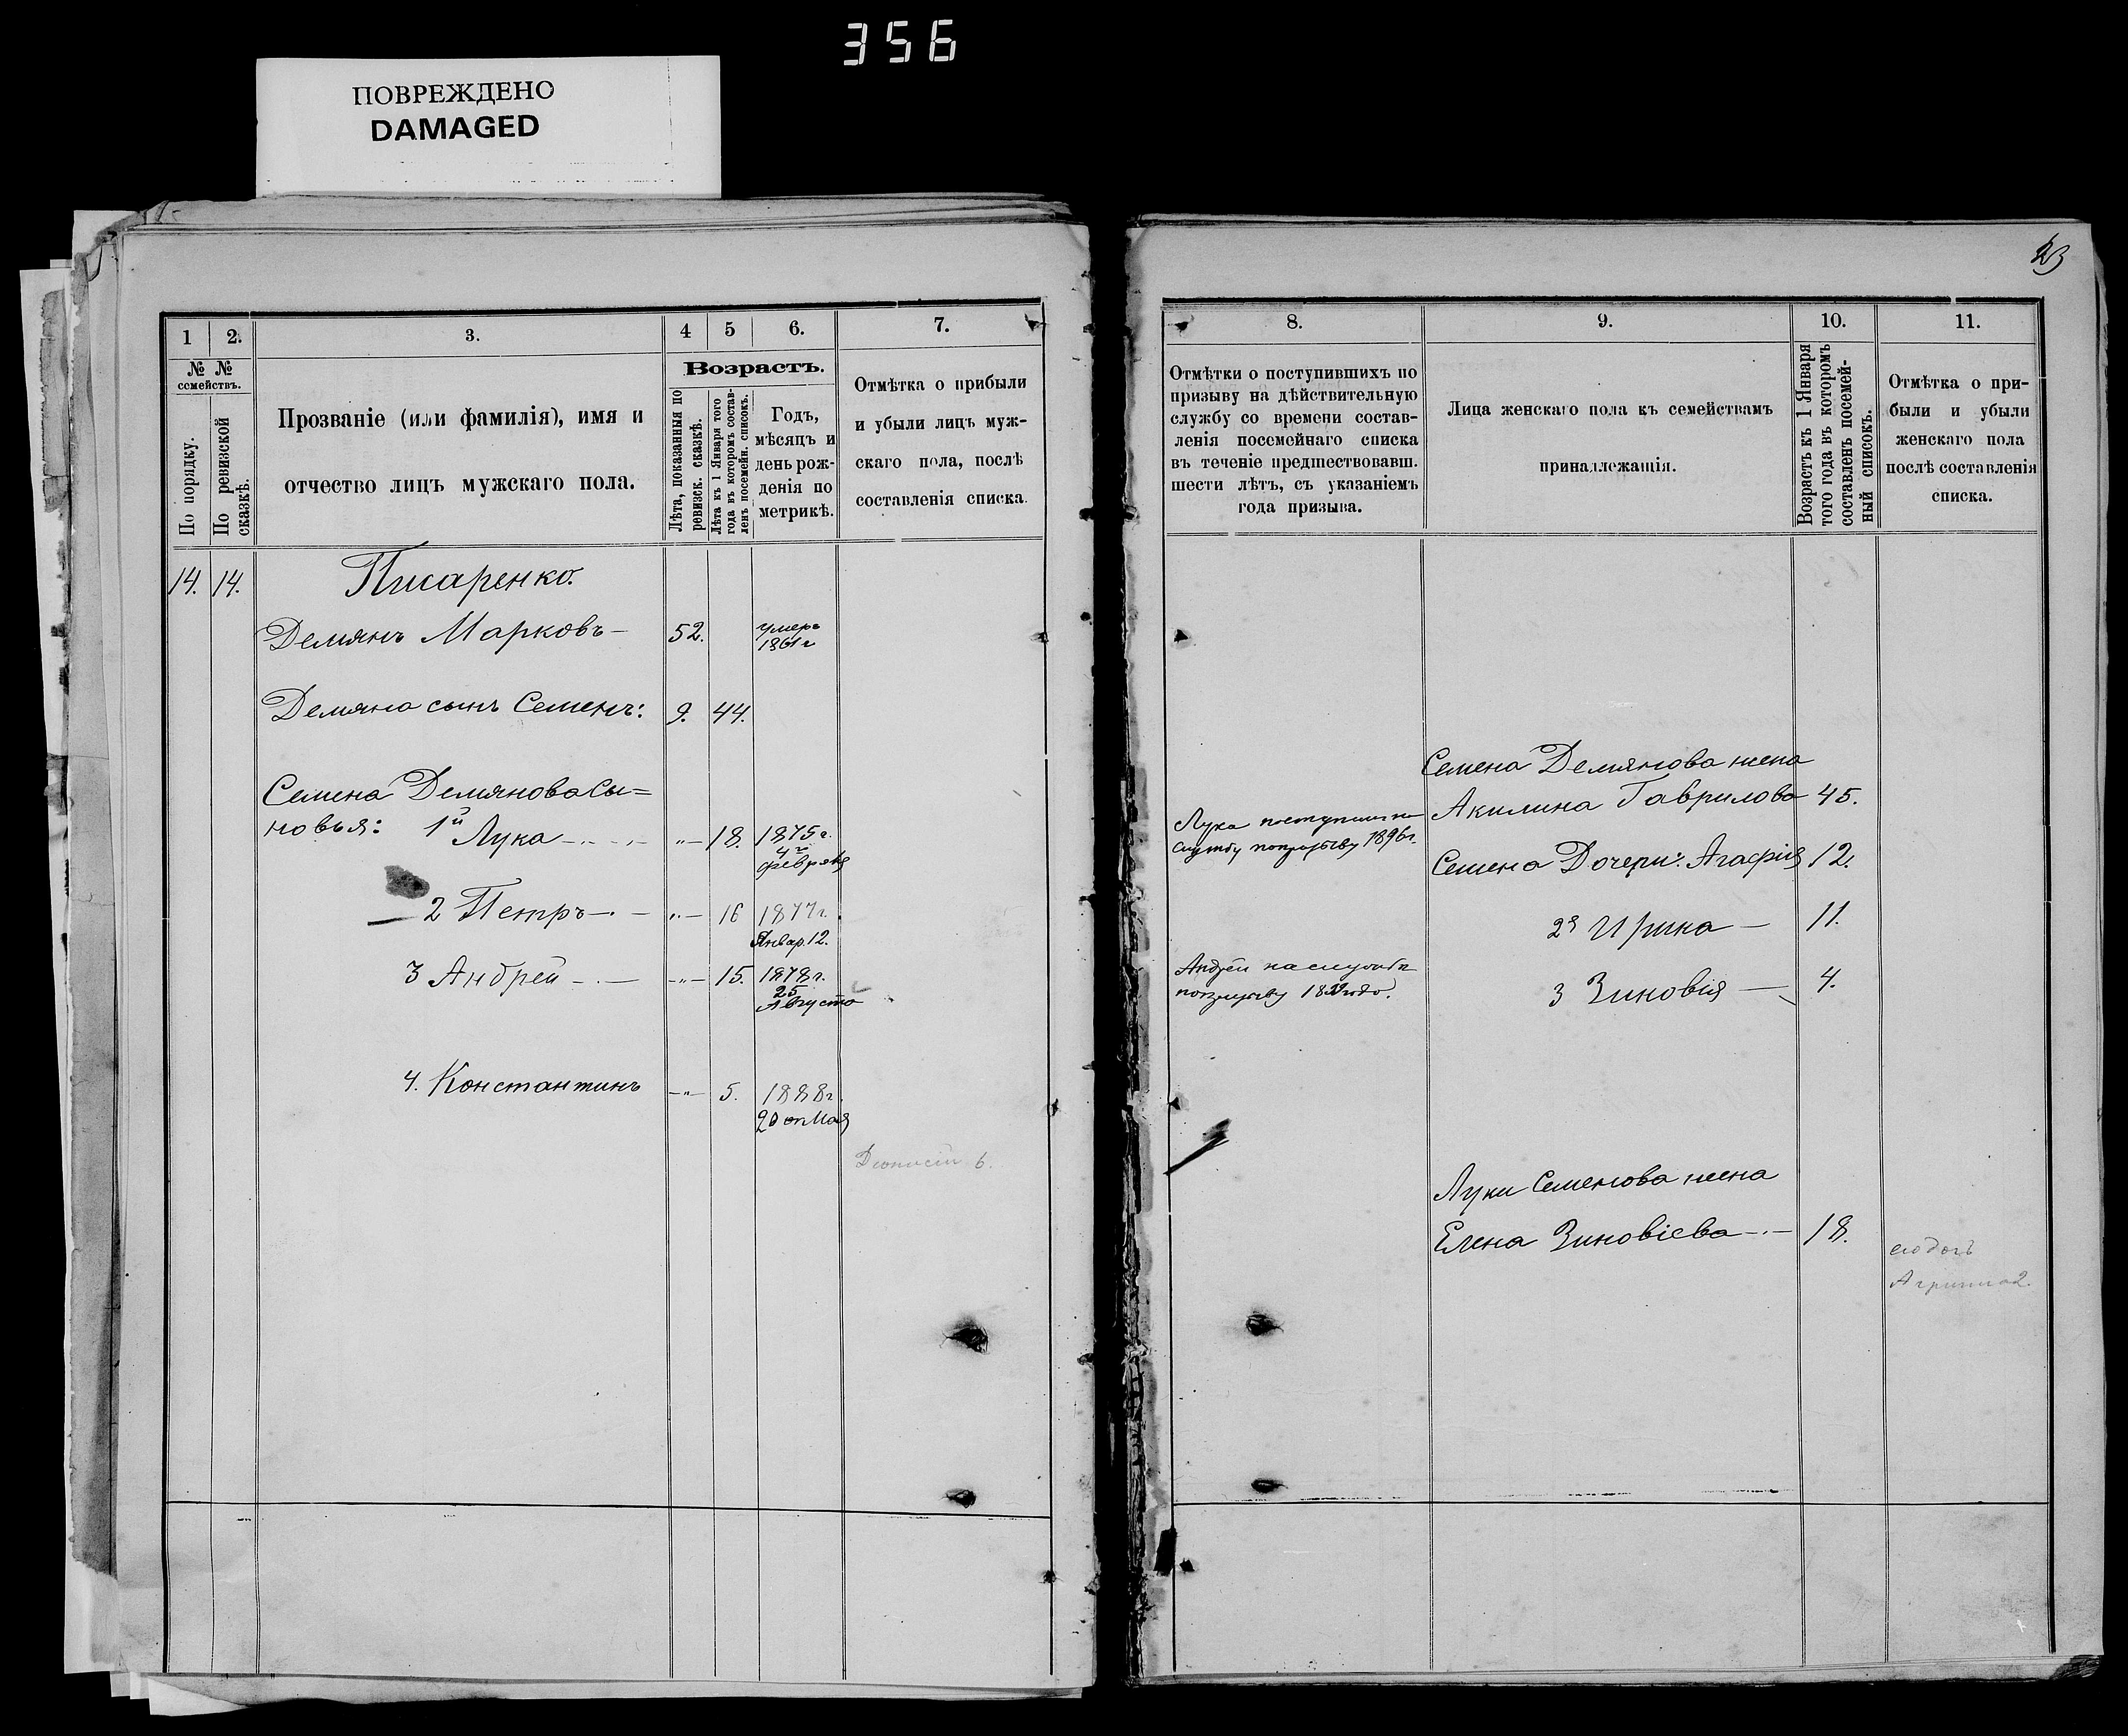 356
ПОВРЕЖДЕНО
DAMAGED
23
1
2.
3.
4
5
6.
7.
№ №
семействъ.
По порядку.
По ревизской
сказкѣ.
Прозваніе (или фамилія), имя и
отчество лицъ мужскаго пола.
Возрастъ.
Лѣта, показанныя по
ревизск. сказкѣ.
Лѣта къ 1 Января того
года въ которомъ состав-
ленъ посемейн. списокъ.
Годъ,
мѣсяцъ и
день рож-
денія по
метрикѣ.
Отмѣтка о прибыли
и убыли лицъ муж-
скаго пола, послѣ
составленія списка.
14. 14. Писаренко.
Демянъ Марковъ — 52. умеръ
1861 г
Демяна сынъ Семенъ: 9. 44.
Семена Демянова сы=
новья: 1й Лука — „ — 18. 1875 г.
4го
февраля
2 Петръ — „ — 16 1877 г.
Январ. 12.
3 Андрей — „ — 15. 1878 г.
25
Августа
4. Константинъ — „ — 5. 1888 г.
20 Мая
Діонисій 6.
8.
9.
10.
11.
Отмѣтки о поступившихъ по
призыву на дѣйствительную
службу со времени состав-
ленія посемейнаго списка
въ теченіе предшествовавш.
шести лѣтъ, съ указаніемъ
года призыва.
Лица женскаго пола къ семействамъ
принадлежащія.
Возрастъ къ 1 Января
того года въ которомъ
составленъ посемей-
ный списокъ.
Отмѣтка о при-
были и убыли
женскаго пола
послѣ составленія
списка.
Семена Демянова жена
Акилина Гаврилова 45.
Лука поступилъ на
службу по призыву 1896 г.
Семена Дочери: Агафія 12.
2я Ирина — 11.
Андрей на службѣ
по призыву 1899 года.
3 Зиновія — 4.
Луки Семенова жена
Елена Зиновіева — 18.
его дочь
Агрипина 2.